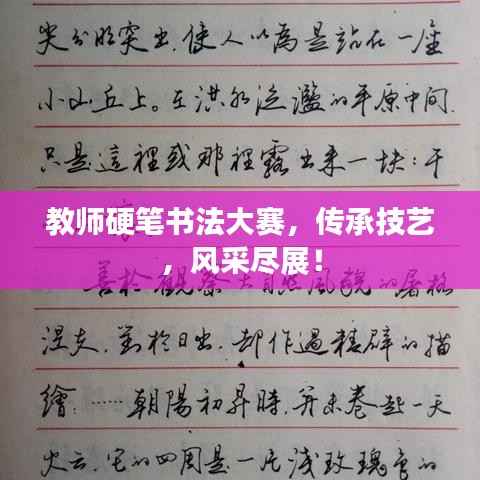 尖分明突出，使人以為是站在一座
小山丘上。在洪水泛濫的平原中間
只是這裡或那裡露出来一块：干
教师硬笔书法大赛，传承技艺
，风采尽展！
善於觀察大自然風貌的屠格
涅夫，對於日出，却作過精辟的描
繪：……朝陽初昇時，并未卷起一天
火云，它的四周是一片浅玫瑰色的